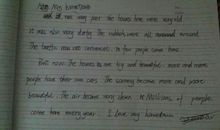 My hometown
was very poor the houses here were very old
It was also very dirty. The rubbish were all around around
The traffic was not convenient. So few people came here.
But now the houses is are big and beautiful. more and more
people have their own cars. The scenery become more and more
beautiful. The air become very clean. Millions of people
come here every year. I love my hometown